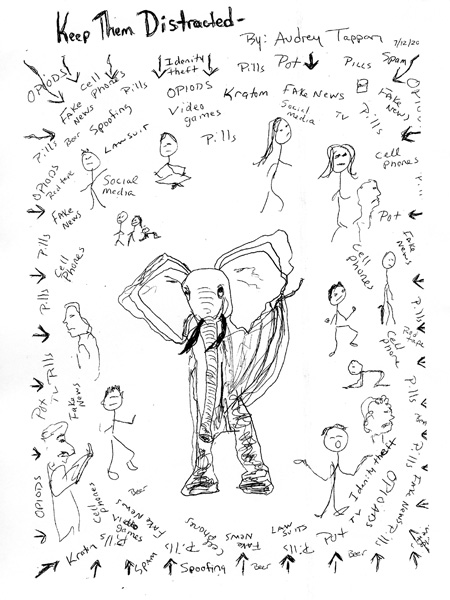 Keep Them Distracted-
By: Audrey Tappan 7/12/20
OPIODS
Cell Phones
Pills
Idenity theft
Pills
Pot
Pills
Spam
OPIODS
Fake News
Spoofing
OPIODS
Kratom
FAKE NEWS
Fake News
Pills
Beer
Lawsuit
Video games
Pills
Social media
TV
Pills
OPIODS
Red tape
Social media
Cell phones
Fake News
Pot
Pills
Cell Phones
Cell Phones
Fake News
Pills
Pills
Red tape
Pills
Cell Phone
Pot
TV
Fake News
Pills
OPIODS
Cell Phones
Beer
Idenity theft
OPIOADS
Pills
Video games
Fake News
Cell Phones
Law Suits
Pot
TV
Fake News
Pills
Kratn
Pills
Spam
Pills
Spoofing
Fake News
Beer
Pills
Beer